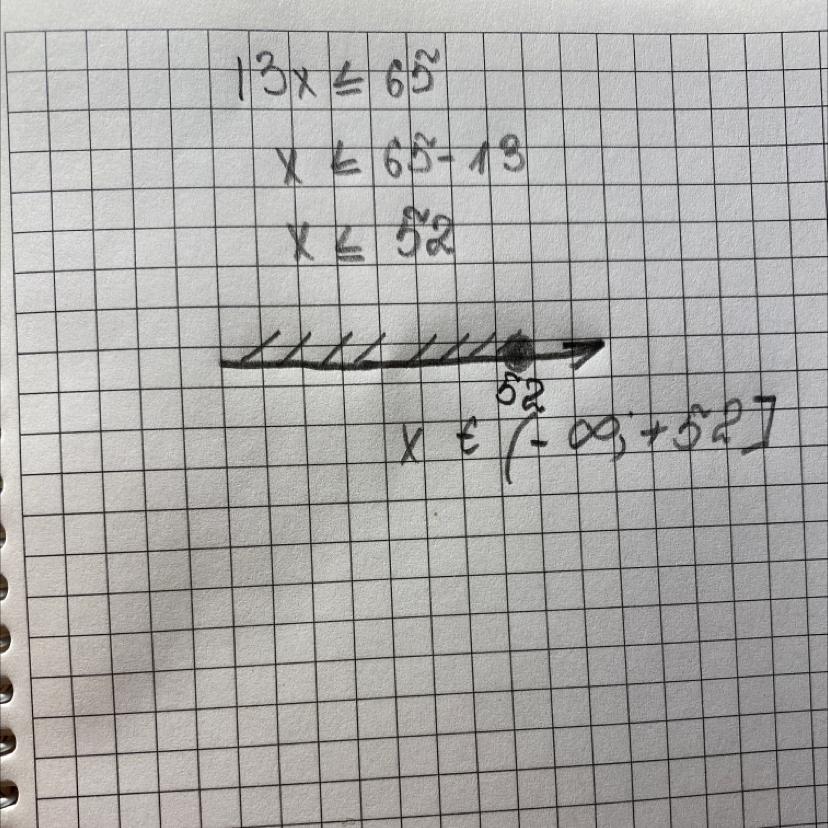 13x ≤ 65
x ≤ 65 - 13
x ≤ 52
52
x ∈ (- ∞; + 52]